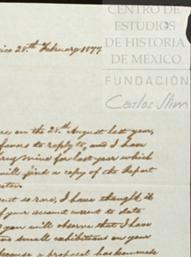 CENTRO DE
ESTUDIOS
DE HISTORIA
DE MÉXICO
FUNDACIÓN
Carlos Slim
ico 28th February 1877
on the 28th August last year,
favors to reply to, and I have
mine for last year which
will find a copy of the Report
so rare, I have thought it
of your account sent to date
you will observe that I have
small exhibitions on your
because a proposal has been made